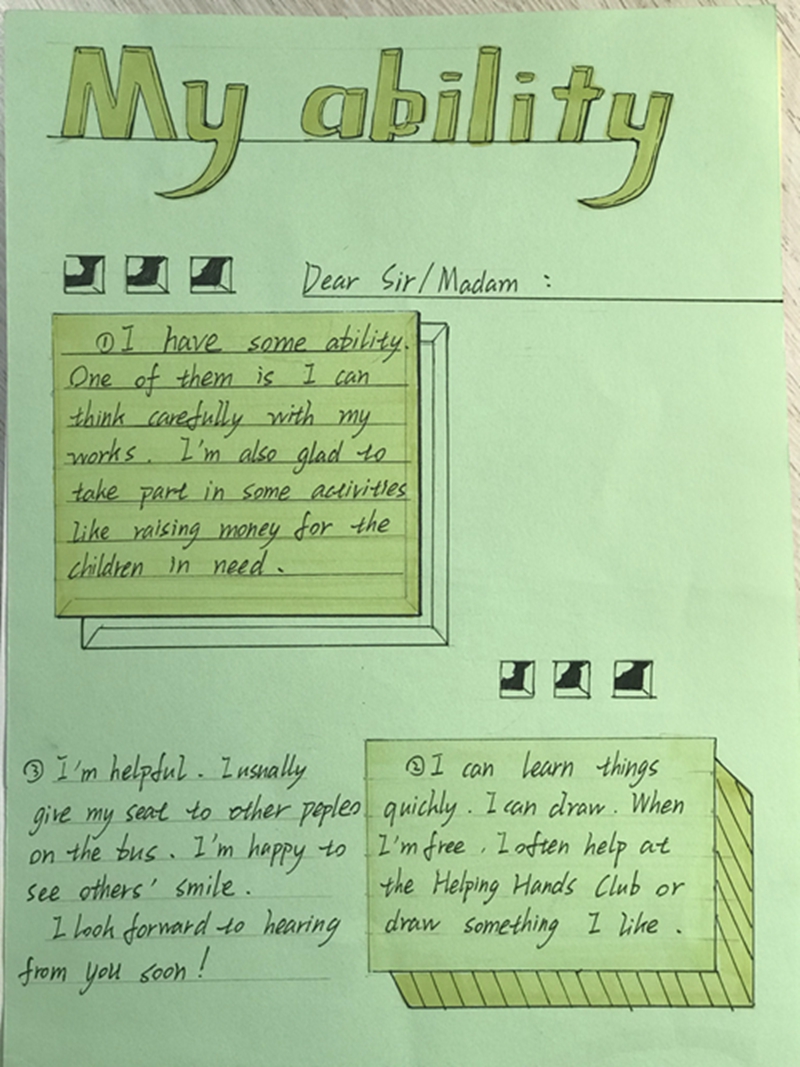 My ability
Dear Sir/Madam :
①I have some ability.
One of them is I can
think carefully with my
works. I'm also glad to
take part in some activities
like raising money for the
children in need.
②I can learn things
quickly. I can draw. When
I'm free, I often help at
the Helping Hands Club or
draw something I like.
③ I'm helpful. I usually
give my seat to other peples
on the bus. I'm happy to
see others' smile.
I look forward to hearing
from you soon!